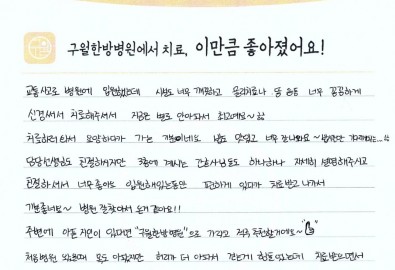 구월한방병원에서 치료, 이만큼 좋아졌어요!
교통사고로 병원에 입원했는데 시설도 너무 깨끗하고 물리치료나 등 너무 꼼꼼하게
신경써서 치료해주셔서 지금은 안아파서 최고예요~
치료하러와서 요양하다가 가는 기분이네요 밥도 맛있고 너무 잘나와요~
담당선생님도 친절하시지만 3층에 계시는 간호사님들도 하나하나 자세히 설명해주시고
친절하셔서 너무좋아요 입원해있는동안 편하게 있다가 치료받고 나가서
기분좋네요~ 병원 잘찾아서 온거 같아요!!
주변에 아픈 지인이 있다면 "구월한방병원"으로 가라고 적극 추천할거예요~
처음병원 왔을때 목도 아팠지만 허리가 더 아파서 걷는게 힘들었는데 치료받으면서